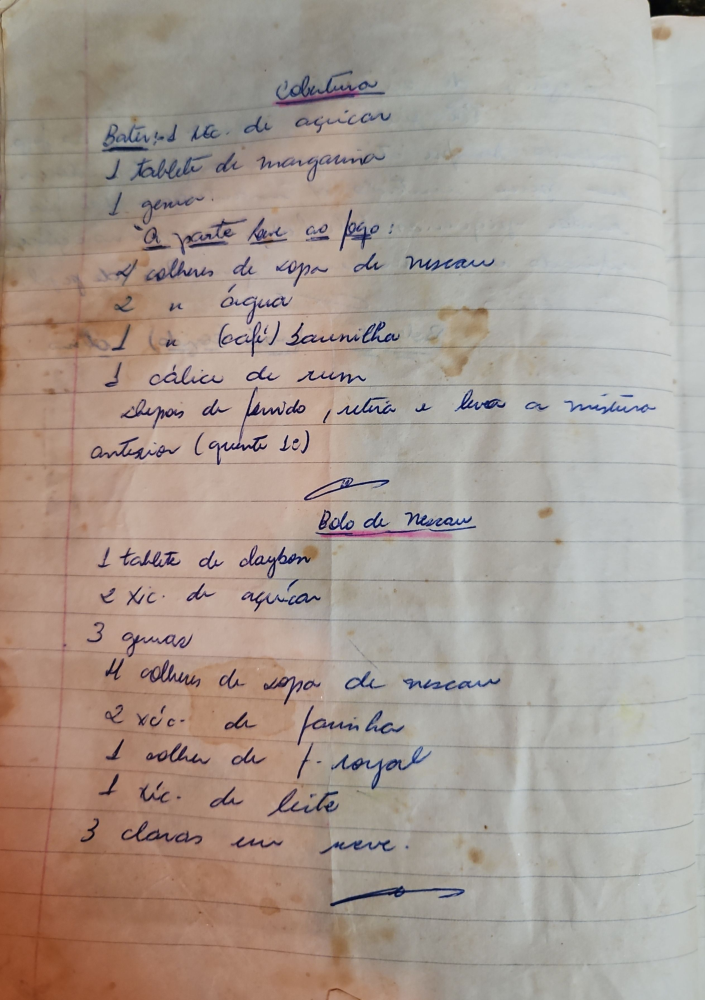 Cobertura
Bater: 1 xíc. de açúcar
1 tablete de margarina
1 gema.
A parte leve ao fogo:
4 colheres de sopa de nescau
2 " água
1 " (café) baunilha
1 cálice de rum
Depois de fervido, retira e leva a mistura
anterior (quente is)
Bolo de Nescau
1 tablete de claybon
2 xíc. de açúcar
3 gemas
4 colheres de sopa de nescau
2 xíc. de farinha
1 colher de f. royal
1 xíc. de leite
3 claras em neve.